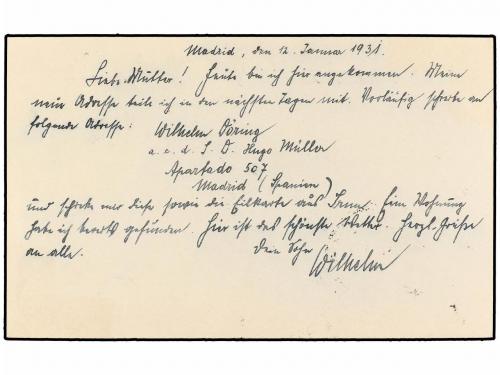 Madrid, den 12. Januar 1931.
Liebe Mutter! Heute bin ich hier angekommen. Meine
neue Adresse teile ich in den nächsten Tagen mit. Vorläufig schreibe an
folgende Adresse:
Wilhelm Döring
a. c. d. S. D. Hugo Müller
Apartado 507
Madrid (Spanien)
und schicke mir diese sowie die Eilkarte aus Irun. Eine Wohnung
habe ich bereits gefunden. Hier ist das schönste Wetter. Herzl. Grüße
an alle.
Dein Sohn
Wilhelm